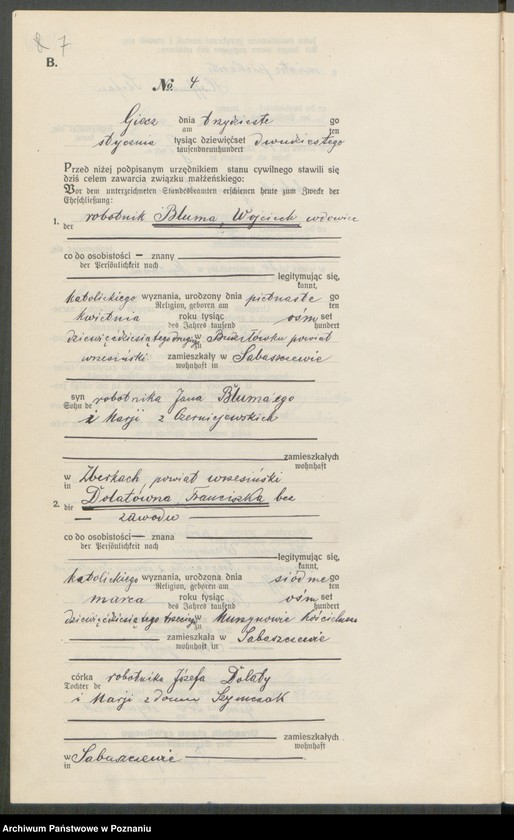 7
B.
No 4
Giecz dnia trzydzieste go
am ten
stycznia tysiąc dziewięćset dwudziestego
tausendneunhundert
Przed niżej podpisanym urzędnikiem stanu cywilnego stawili się
dziś celem zawarcia związku małżeńskiego:
Vor dem unterzeichneten Standesbeamten erschienen heute zum Zweck der
Eheschließung:
1. robotnik Bluma, Wojciech wdowiec
der
co do osobistości — znany
der Persönlichkeit nach
legitymując się,
kannt,
katolickiego wyznania, urodzony dnia piętnaste go
Religion, geboren am ten
kwietnia roku tysiąc ośm set
des Jahres tausend hundert
dziewięćdziesiątego w powiat
zu
wrzesiński zamieszkały w Sabaszczewie
wohnhaft in
syn robotnika Jana Blumaego
Sohn de
i Marji z Czerniejewskich
zamieszkałych
wohnhaft
w Zberkach, powiat wrzesiński
in
2. Dolatówna, Franciszka bez
die
— zawodu
co do osobistości — znana
der Persönlichkeit nach
legitymując się,
kannt,
katolickiego wyznania, urodzona dnia siódme go
Religion, geboren am ten
marca roku tysiąc ośm set
des Jahres tausend hundert
dziewięćdziesiątego trzeciego w Murzynowie Kościelnem
zu
zamieszkała w Sabaszczewie
wohnhaft in
córka robotnika Józefa Dolaty
Tochter de
i Marji z domu Szymczak
zamieszkałych
wohnhaft
w Sabaszczewie
in
Archiwum Państwowe w Poznaniu
www.szukajwarchiwach.gov.pl